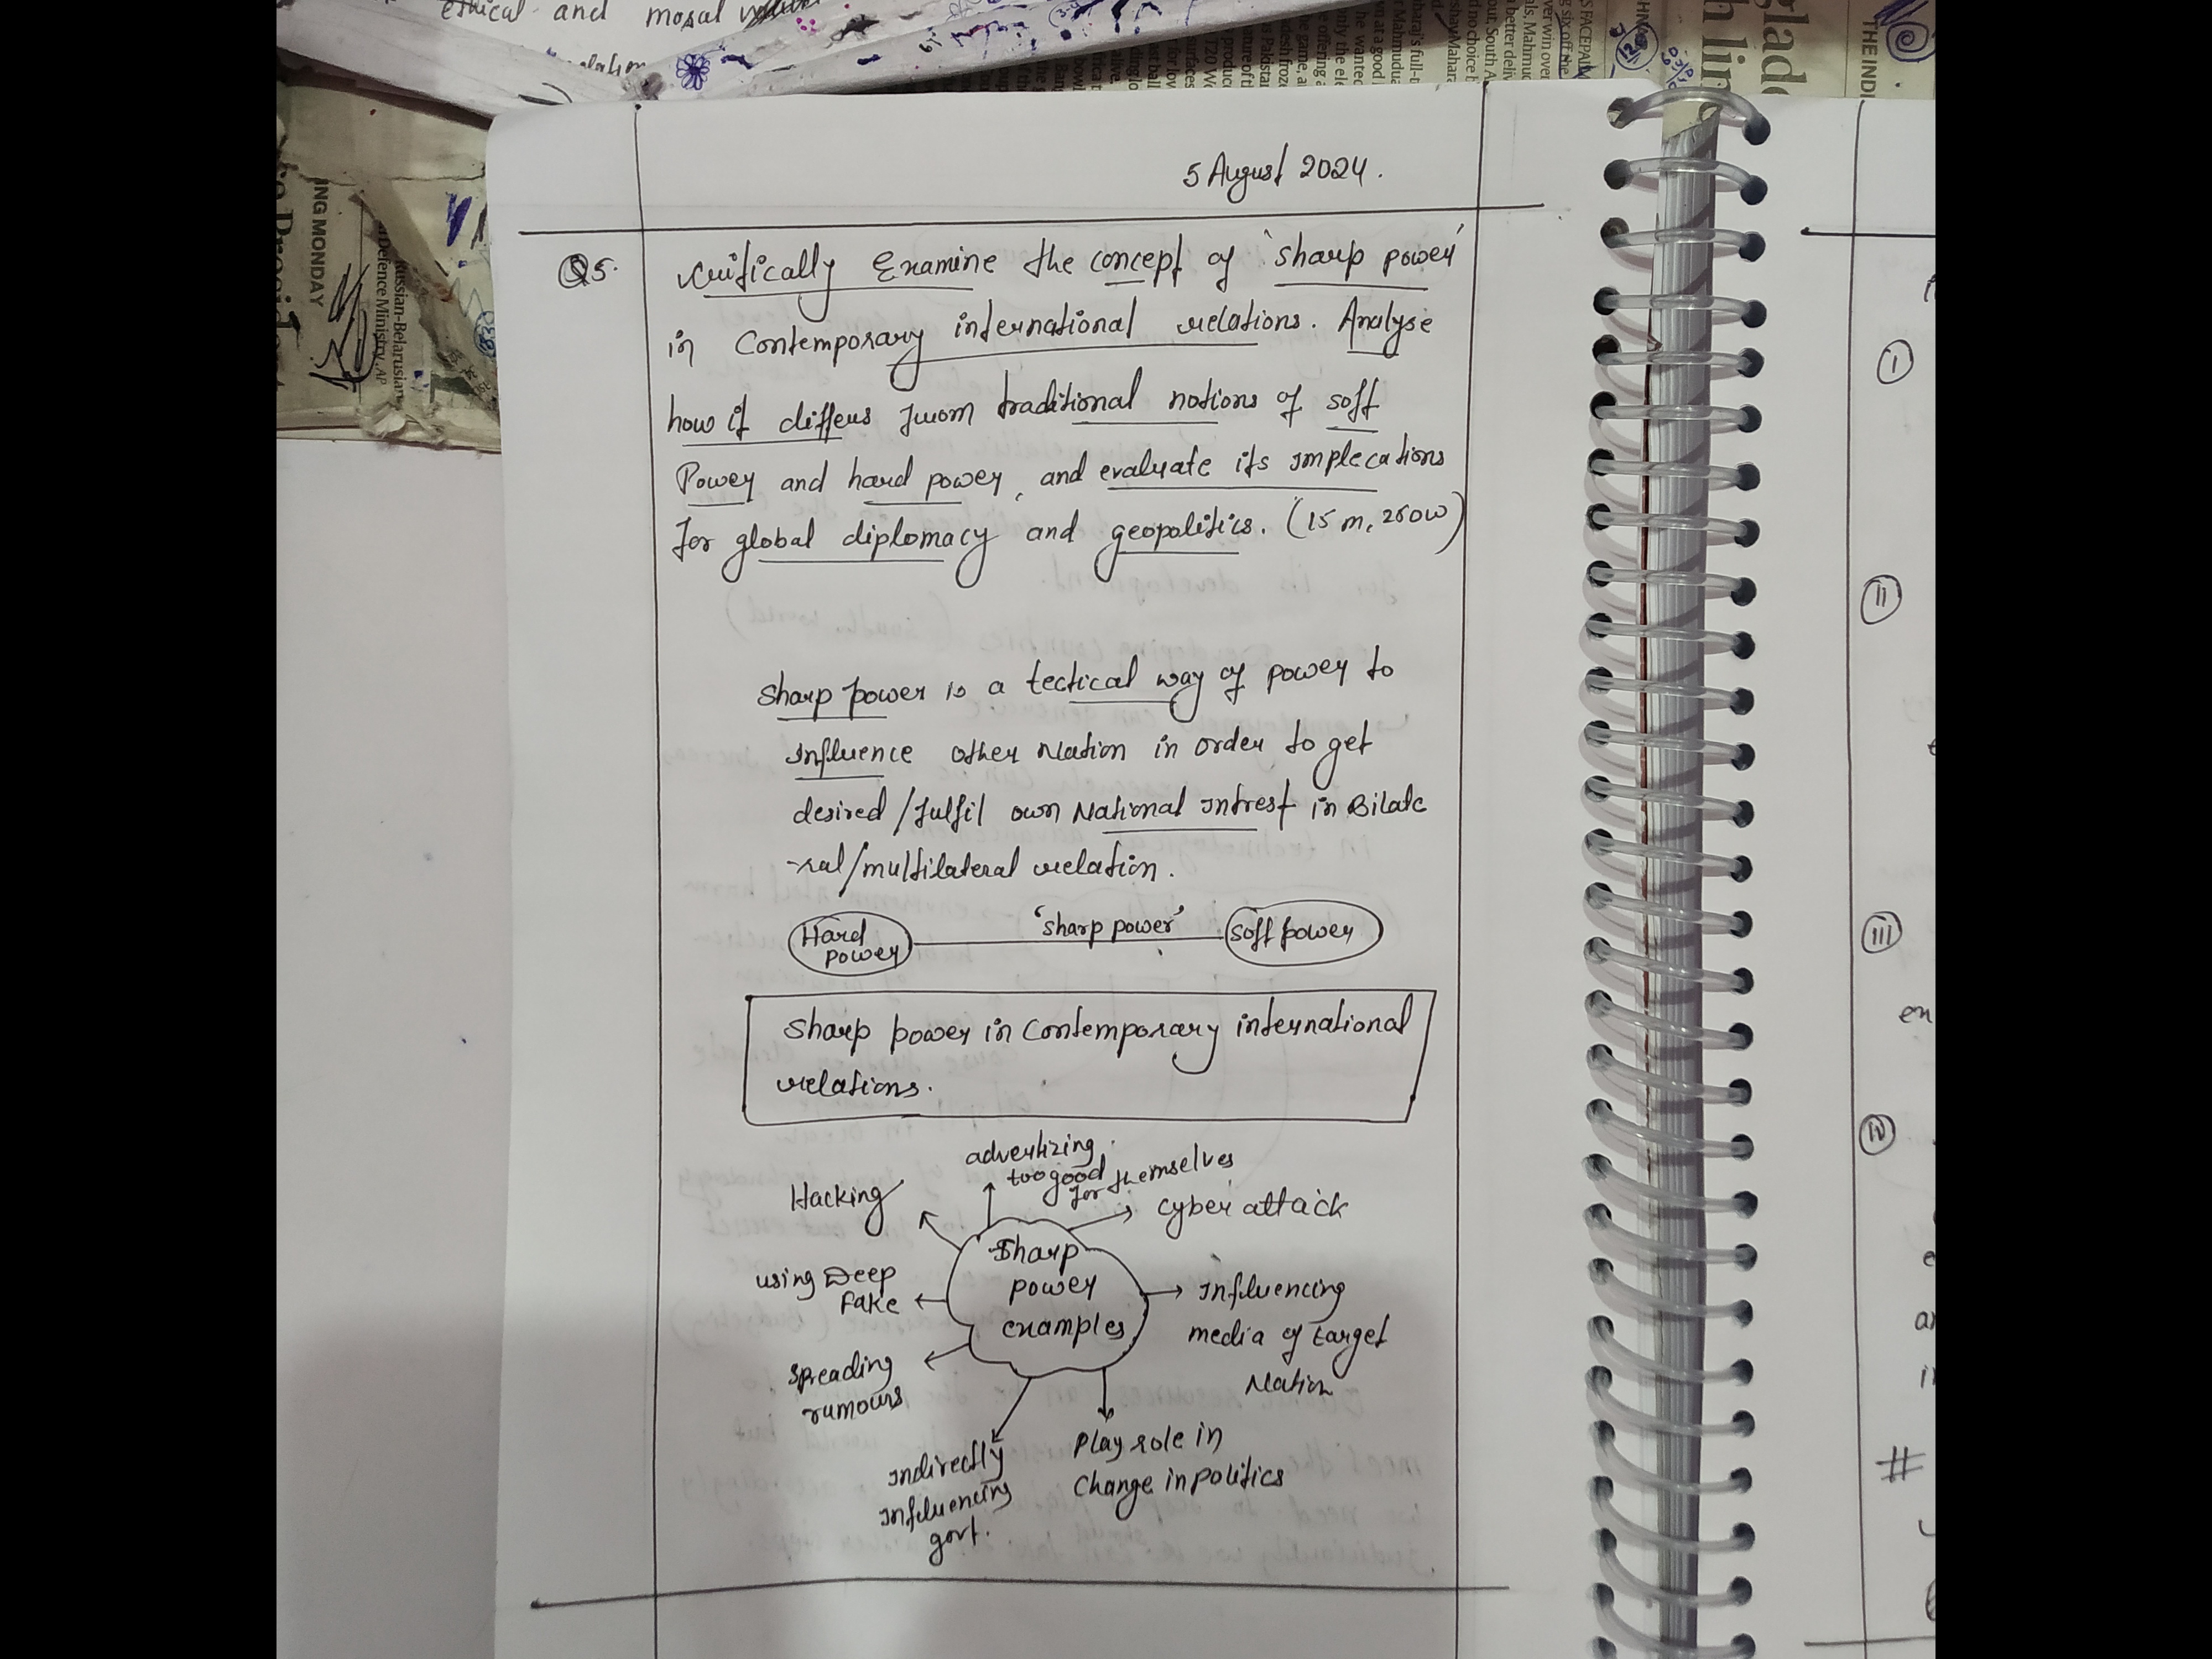 ethical and moral
5 August 2024.
Q5. Critically Examine the concept of 'sharp power'
in Contemporary international relations. Analyse
how it differs from traditional notions of soft
Power and hard power, and evaluate its implecations
for global diplomacy and geopolitics. (15 m, 250w)
Sharp power is a tectical way of power to
influence other Nation in order to get
desired/fulfil own National intrest in Bilate
-ral/multilateral relation.
Hard power 'sharp power' soft power
Sharp power in Contemporary international
relations.
advertizing
too good
for themselves
Hacking
cyber attack
Sharp
power
examples
using Deep
Fake
Influencing
media of target
Nation
spreading
rumours
Indirectly
Influencing
govt.
Play role in
Change in politics
I
II
III
en
IV
#
ING MONDAY
Russian-Belarusian
Defence Ministry. AP
THE INDI
glad
h lin